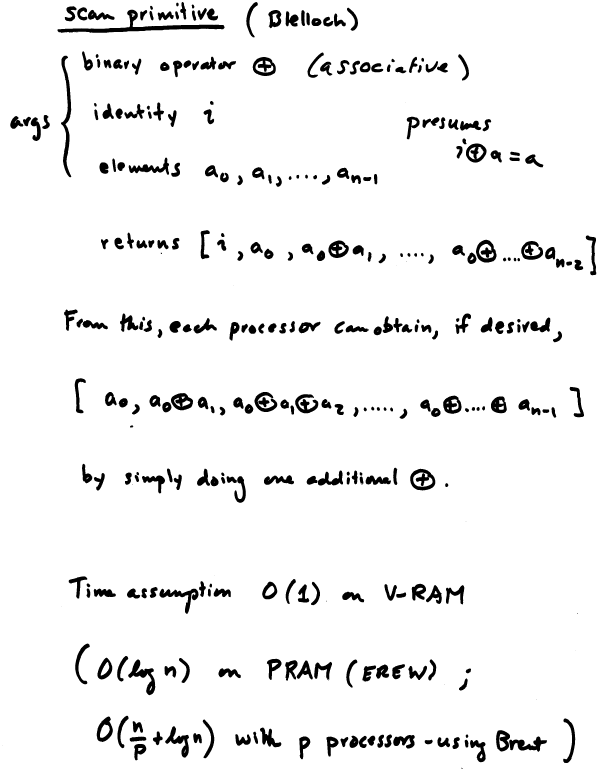 scan primitive (Blelloch)
args { binary operator ⊕ (associative)
identity i
presumes
i⊕a = a
elements a₀, a₁, ...., aₙ₋₁
returns [i, a₀, a₀⊕a₁, ...., a₀⊕....⊕aₙ₋₂]
From this, each processor can obtain, if desired,
[ a₀, a₀⊕a₁, a₀⊕a₁⊕a₂, ....., a₀⊕....⊕ aₙ₋₁ ]
by simply doing one additional ⊕.
Time assumption O(1) on V-RAM
(O(log n) on PRAM (EREW) ;
O(n/p + log n) with p processors - using Brent )